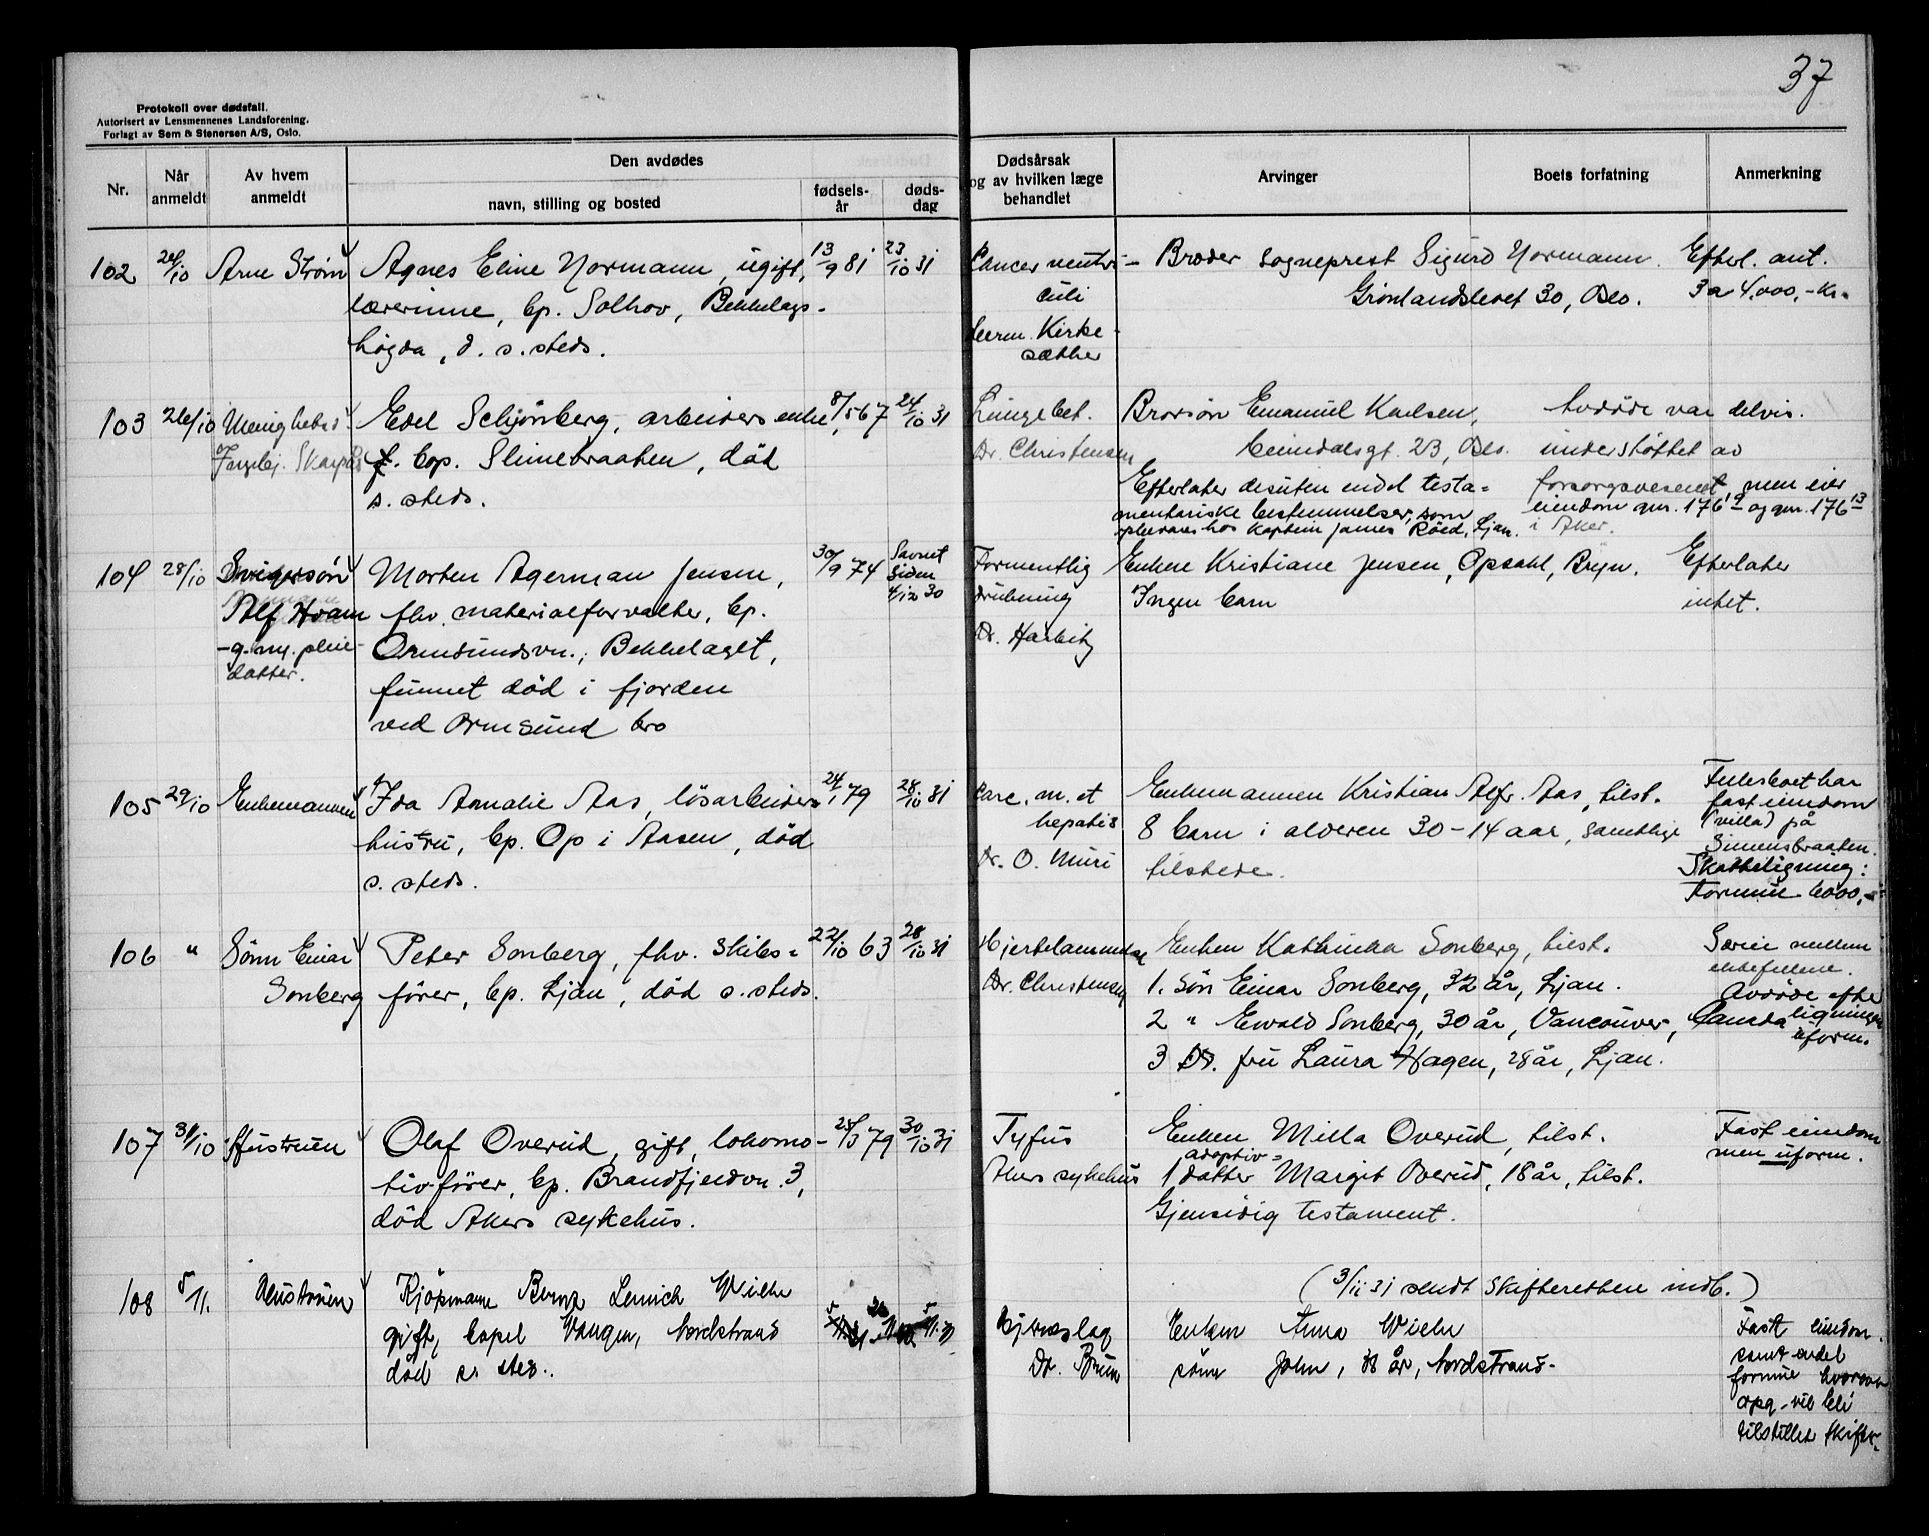 37
Protokoll over dødsfall.
Autorisert av Lensmennenes Landsforening.
Forlagt av Sem & Stenersen A/S, Oslo.
Nr.
Når anmeldt
Av hvem anmeldt
Den avdødes
navn, stilling og bosted
fødsels-år
døds-dag
Dødsårsak og av hvilken læge behandlet
Arvinger
Boets forfatning
Anmerkning
102 26/10 Arne Strøm Agnes Eline Normann, ugift, 13/9 81 23/10 31
lærerinne, bp. Solhov, Bekkelags-
høgda, d. s. steds.
Cancer ventri-
culi
Kirke-
sæther
Broder sogneprest Sigurd Normann.
Grønlandsleret 30, Oslo.
Efterl. ant.
3 a 4.000,- kr.
103 26/10 Menighets
Ingebj. Skarpås
Edel Schjønberg, arbeiders enke, 8/5 67 24/10 31
f. bop. Slimebraaten, død
s. steds.
Lungebet.
Dr. Christensen
Brorsøn Emanuel Karlsen,
23, Oslo.
Efterlater desuten endel testa=
mentariske bestemmelser, som
opbevares hos kaptein James Röed, Ljan.
Avdøde var delvis.
understøttet av
forsorgsvesenet, men eier
eiendom gnr. 176 og gnr. 176 13
i Aker.
104 28/10 Svigersøn
Alf Hvam
pleie-
datter.
Morten Agerman Jensen, 30/9 74 Savnet
siden
4/12 30
fhv. materialforvalter, bp.
Ormsundsvn., Bekkelaget,
funnet død i fjorden
ved Ormsund bro
Formentlig
drukning
Dr. Harbitz
Enken Kristiane Jensen, Opsahl, Bryn.
Ingen barn
Efterlater
intet.
105 29/10 Enkemannen Ida Amalie Aas, løsarbeiders 24/1 79 28/10 31
hustru, bp. Op i Aasen, død
s. steds.
Carc. m. et
hepatis
Dr. O. Muri
Enkemannen Kristian Alfr. Aas, tilst.
8 barn i alderen 30-14 aar, samtlige
tilstede.
Fellesboet har
fast eiendom
(villa) på
Simensbraaten.
Skatteligning:
Formue 6000,-
106 " Sønn Einar
Sonberg
Peter Sonberg, fhv. skibs= 22/10 63 28/10 31
fører, bp. Ljan, død s. steds.
Hjertelammelse
Dr. Christensen
Enken Kathinka Sonberg, tilst.
1. Søn Einar Sonberg, 32 år, Ljan.
2 " Ewald Sonberg, 30 år, Vancouver, Canada
3 Dr. fru Laura Hagen, 28 år, Ljan.
Særeie mellem
ektefellene.
Avdøde efter
ligningen
uform.
107 31/10 Hustruen Olaf Overud, gift, lokomo- 25/3 79 30/10 31
tivfører, bp. Brandfjeldvn. 3,
død Akers sykehus.
Tyfus
Akers sykehus
Enken Milla Overud, tilst.
adoptiv=
1 datter Margit Overud, 18 år, tilst.
Gjensidig testament.
Fast eiendom
men uform.
(3/11 31 sendt skifteretten indb.)
108 5/11 Hustruen Kjøpmann Wiehn
gift, bopel Vangen, Nordstrand
død s. sted.
5/11 31
Hjerneslag
Dr. Bruun
Enken Anna Wiehn
sønn John, år, Nordstrand.
Fast eiendom
samt endel
formue hvorom
opg. vil bli
tilstillet skifter.